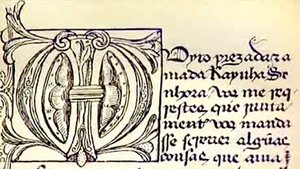 Muyto prezada z a
mada Raynha Se
nhora Vos me req
restes que iunta
ment vos manda
sse screver algũas
consas que avia